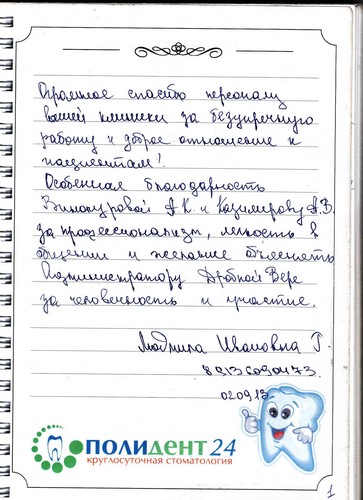 Огромное спасибо персоналу
вашей клиники за безупречную
работу и доброе отношение к
пациентам!
Особенная благодарность
Винокуровой А.К. и Казимирову А.В.
за профессионализм, легкость в
общении и желание объяснять
Администратору Дробной Вере
за человечность и участие.
Людмила Ивановна Г.
89136090473.
02.09.13
ПОЛИДЕНТ 24
круглосуточная стоматология
1